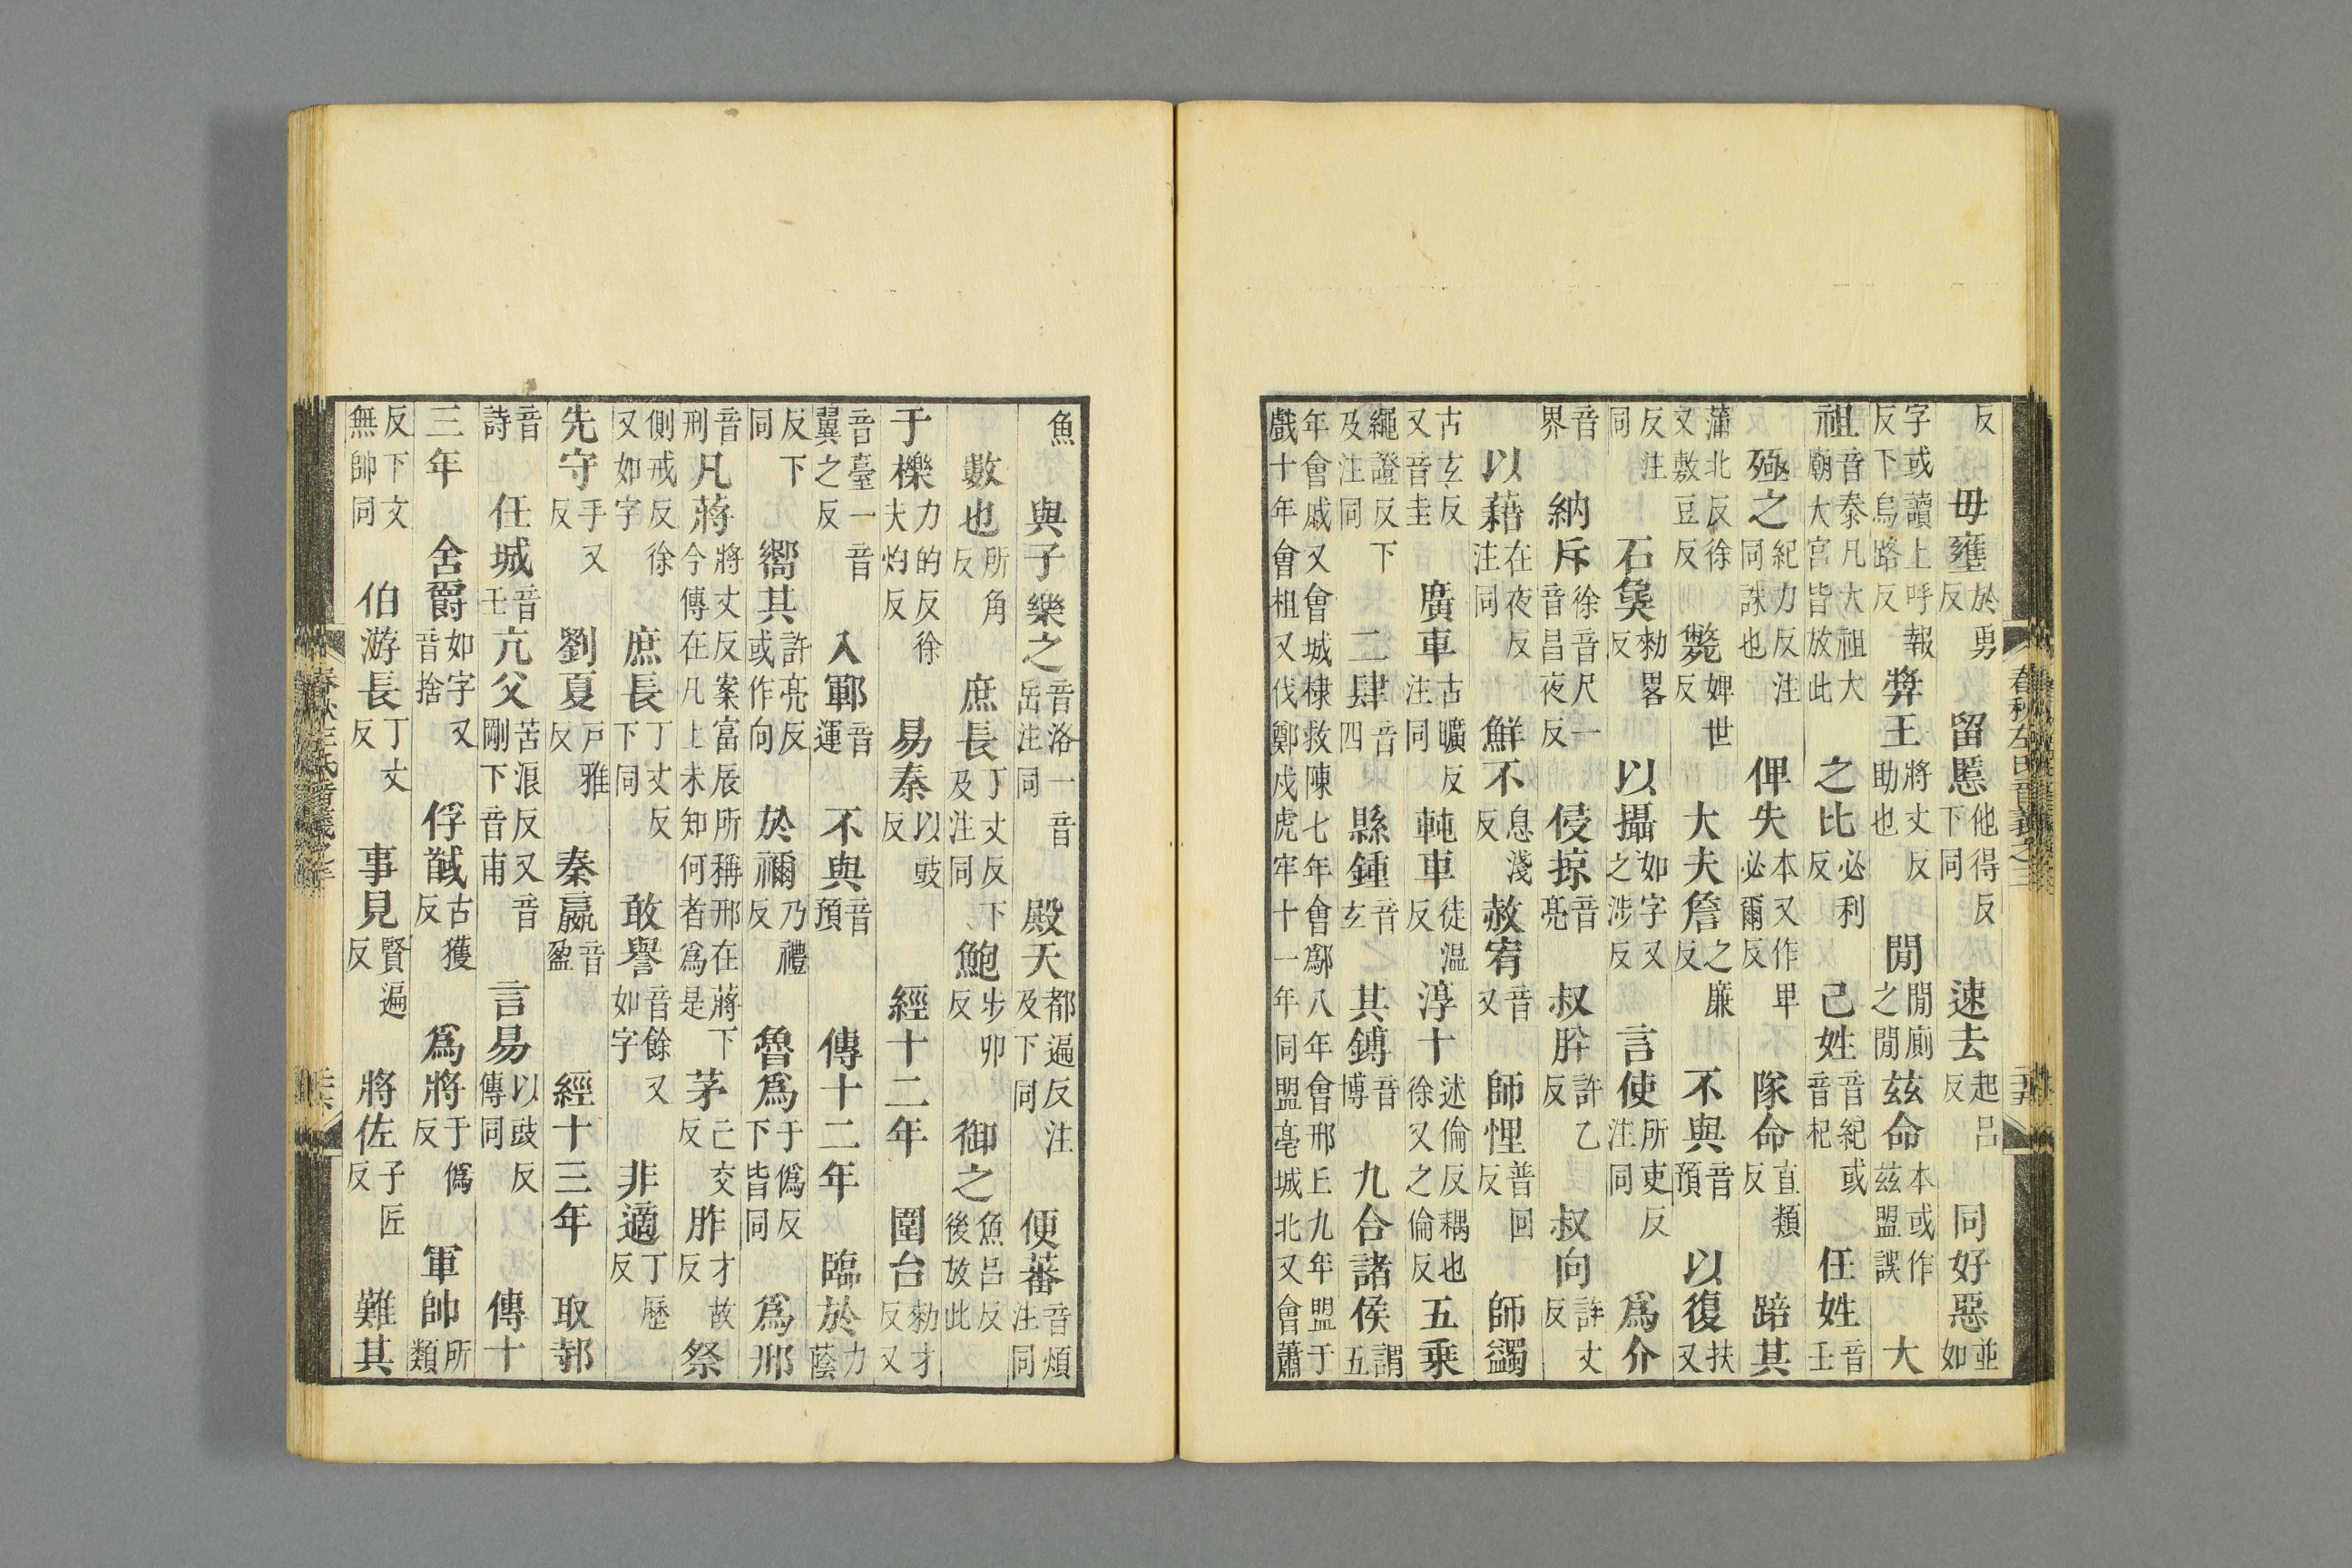 春秋左氏音義之三
反　毋壅於勇反　留慝他得反下同　速去起呂反　同好惡並如
字或讀上呼報反下烏路反　獘王將丈反助也　閒閒廁之閒　玆命本或作玆盟誤　大
祖音泰凡大祖大廟大宮皆放此　之比必利反　己姓音紀或音杞　任姓音壬
殛之紀力反注同誅也　俾失本又作卑必爾反　隊命直類反　踣其
蒲北反徐又敷豆反　斃婢世反　大夫詹之廉反　不與音預　以復扶又
反注同　石㚟勑畧反　以攝如字又之涉反　言使所吏反注同　爲介
音界　納斥徐音尺一音昌夜反　侵掠音亮　叔肸許乙反　叔向許丈反
以藉在夜反注同　鮮不息淺反　赦宥音又　師悝普回反　師蠲
古玄反又音圭　廣車古曠反注同　軘車徒溫反　淳十述倫反耦也徐又之倫反　五乘
繩證反下及注同　二肆音四　縣鍾音玄　其鎛音博　九合諸侯謂五
年會戚又會城棣救陳七年會鄬八年會邢丘九年盟于戲十年會柤又伐鄭戍虎牢十一年同盟亳城北又會蕭
魚　與子樂之音洛一音岳注同　殿天都遍反注及下同　便蕃音煩注同
數也所角反　庶長丁丈反下及注同　鮑步卯反　御之魚呂反後放此
于櫟力的反徐夫灼反　易秦以豉反　經十二年　圍台勑才反又
音臺一音翼之反　入鄆音運　不與音預　傳十二年　臨於力蔭
反下同　嚮其許亮反或作向　於禰乃禮反　魯爲于僞反下皆同　爲邢
音刑　凡蔣將丈反案富辰所稱邢在蔣下今傳在凡上未知何者爲是　茅亡交反　胙才故反　祭
側戒反徐又如字　庶長丁丈反下同　敢譽音餘又如字　非適丁歷反
先守手又反　劉夏戶雅反　秦嬴音盈　經十三年　取邿
音詩　任城音壬　亢父苦浪反又音剛下音甫　言易以豉反傳同　傳十
三年　舍爵如字又音捨　俘馘古獲反　爲將于僞反　軍帥所類
反下文無帥同　伯游長丁丈反　事見賢遍反　將佐子匠反　難其
春秋左氏音義之三